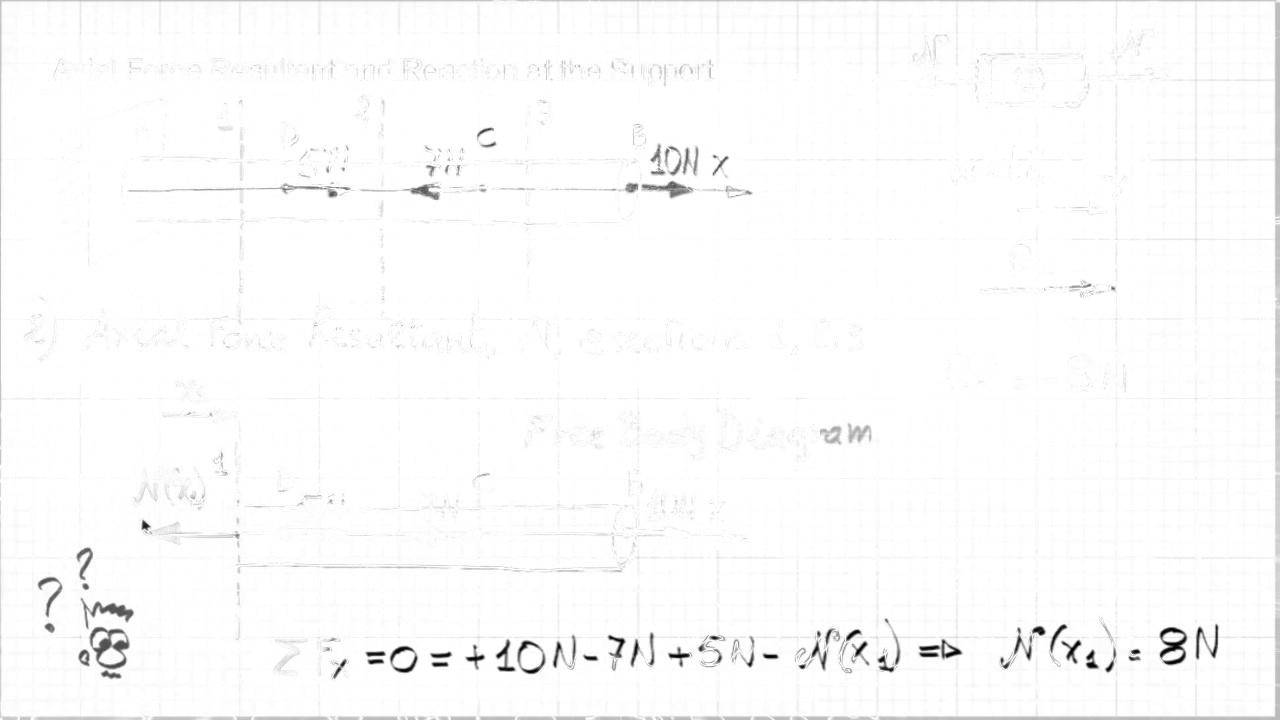 Axial Force Resultant and Reaction at the Support
N N
1 2 3
D 5N 7N C B 10N x
2) Axial Force Resultant, N, @ sections 1, 2, 3
= -8N
x₁
Free Body Diagram
N(x₁) 1 D 7N C B 10N x
? ?
ΣFx = 0 = +10N - 7N + 5N - N(x₁) => N(x₁) = 8N